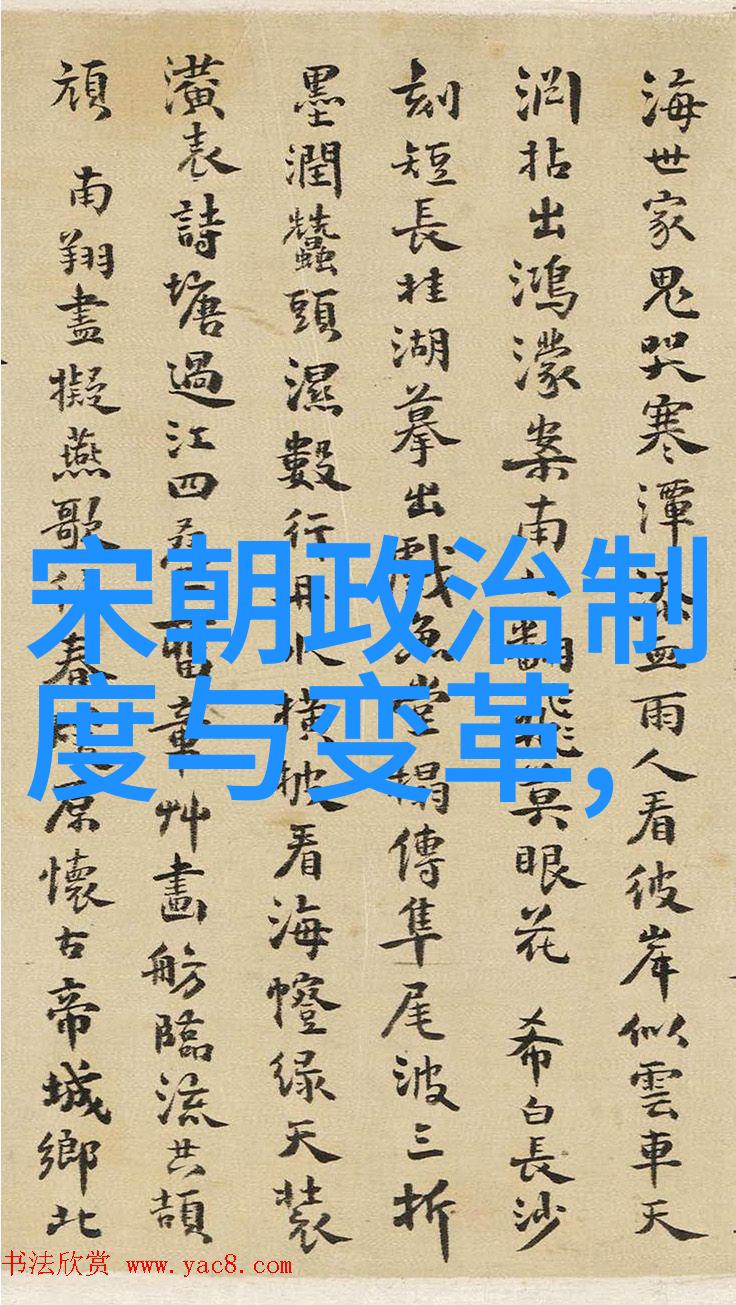 海世家鬼哭寒潭血雨人看彼岸似雲車天
淵拈出鴻濛案南翻飛莫眼花 希白長沙
刻短長桂湖摹出戲魚堂搨傳隼尾波三折
墨潤蠶頭濕數行冊水橫披看海幢緑天裝
潢表詩塘過江四章艸畫舫臨流共頡
頏 南翔盡擬燕歌行春原懷古帝城鄉北
宋朝政治制
度与变革,
书法欣赏 www.yac8.com